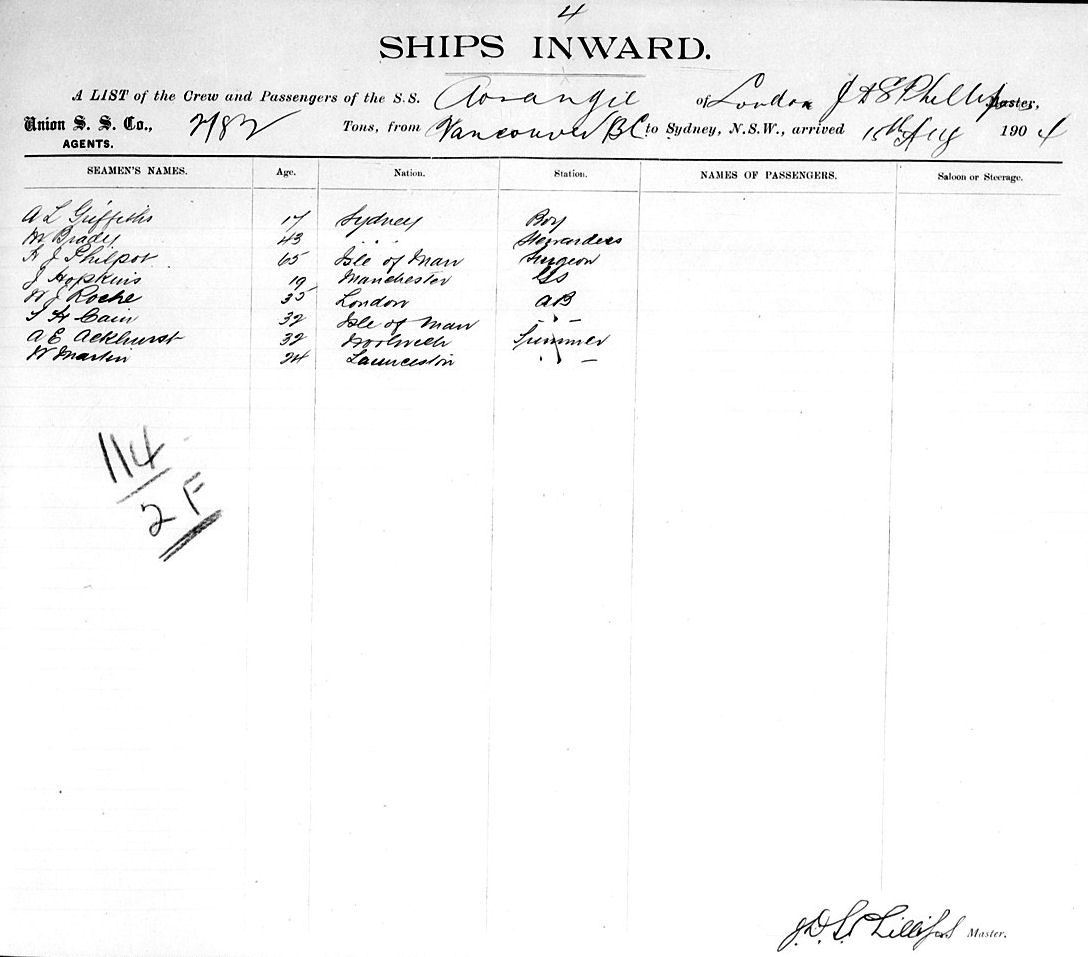 4
SHIPS INWARD.
A LIST of the Crew and Passengers of the S.S. Aorangie of London J D S Phillips Master,
Union S. S. Co., 2782 Tons, from Vancouver BC to Sydney, N.S.W., arrived 15th Aug 1904
AGENTS.
SEAMEN'S NAMES. Age. Nation. Station. NAMES OF PASSENGERS. Saloon or Steerage.
A L Griffiths 17 Sydney Boy
M Brady 43 " " " Stewardess
H J Philpot 65 Isle of Man Surgeon
J Hopkins 19 Manchester GS
W J Roche 35 London AB
J H Cain 32 Isle of Man - " -
A E Ackhurst 32 Woolwich Trimmer
W Martin 24 Launceston - " -
114
2 F
J.D.S. Phillips Master.